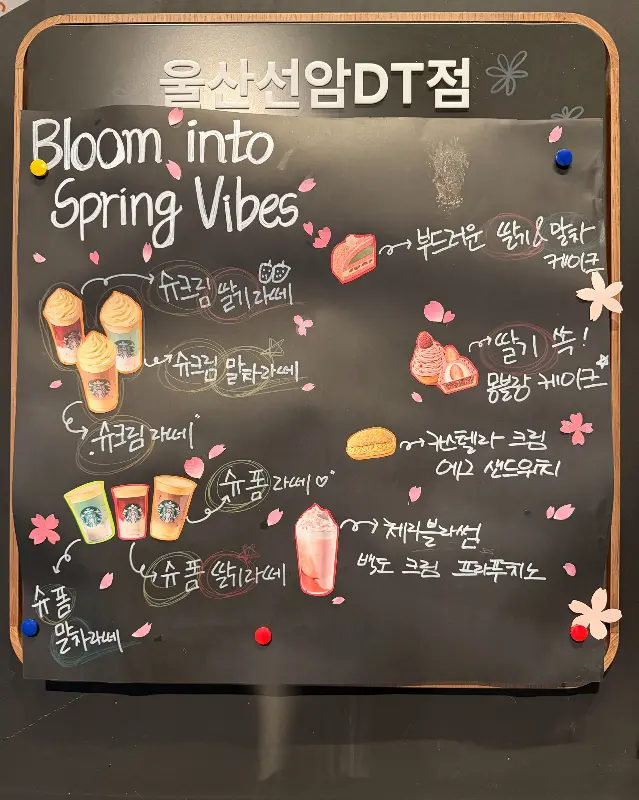 울산선암DT점
Bloom into
Spring Vibes
슈크림 딸기라떼
슈크림 말차라떼
슈크림 라떼
슈폼 라떼♡
슈폼 딸기라떼
슈폼
말차라떼
부드러운 딸기&말차
케이크
딸기 쏙!
몽블랑 케이크
카스텔라 크림
에그 샌드위치
체리블라썸
백도 크림 프라푸치노